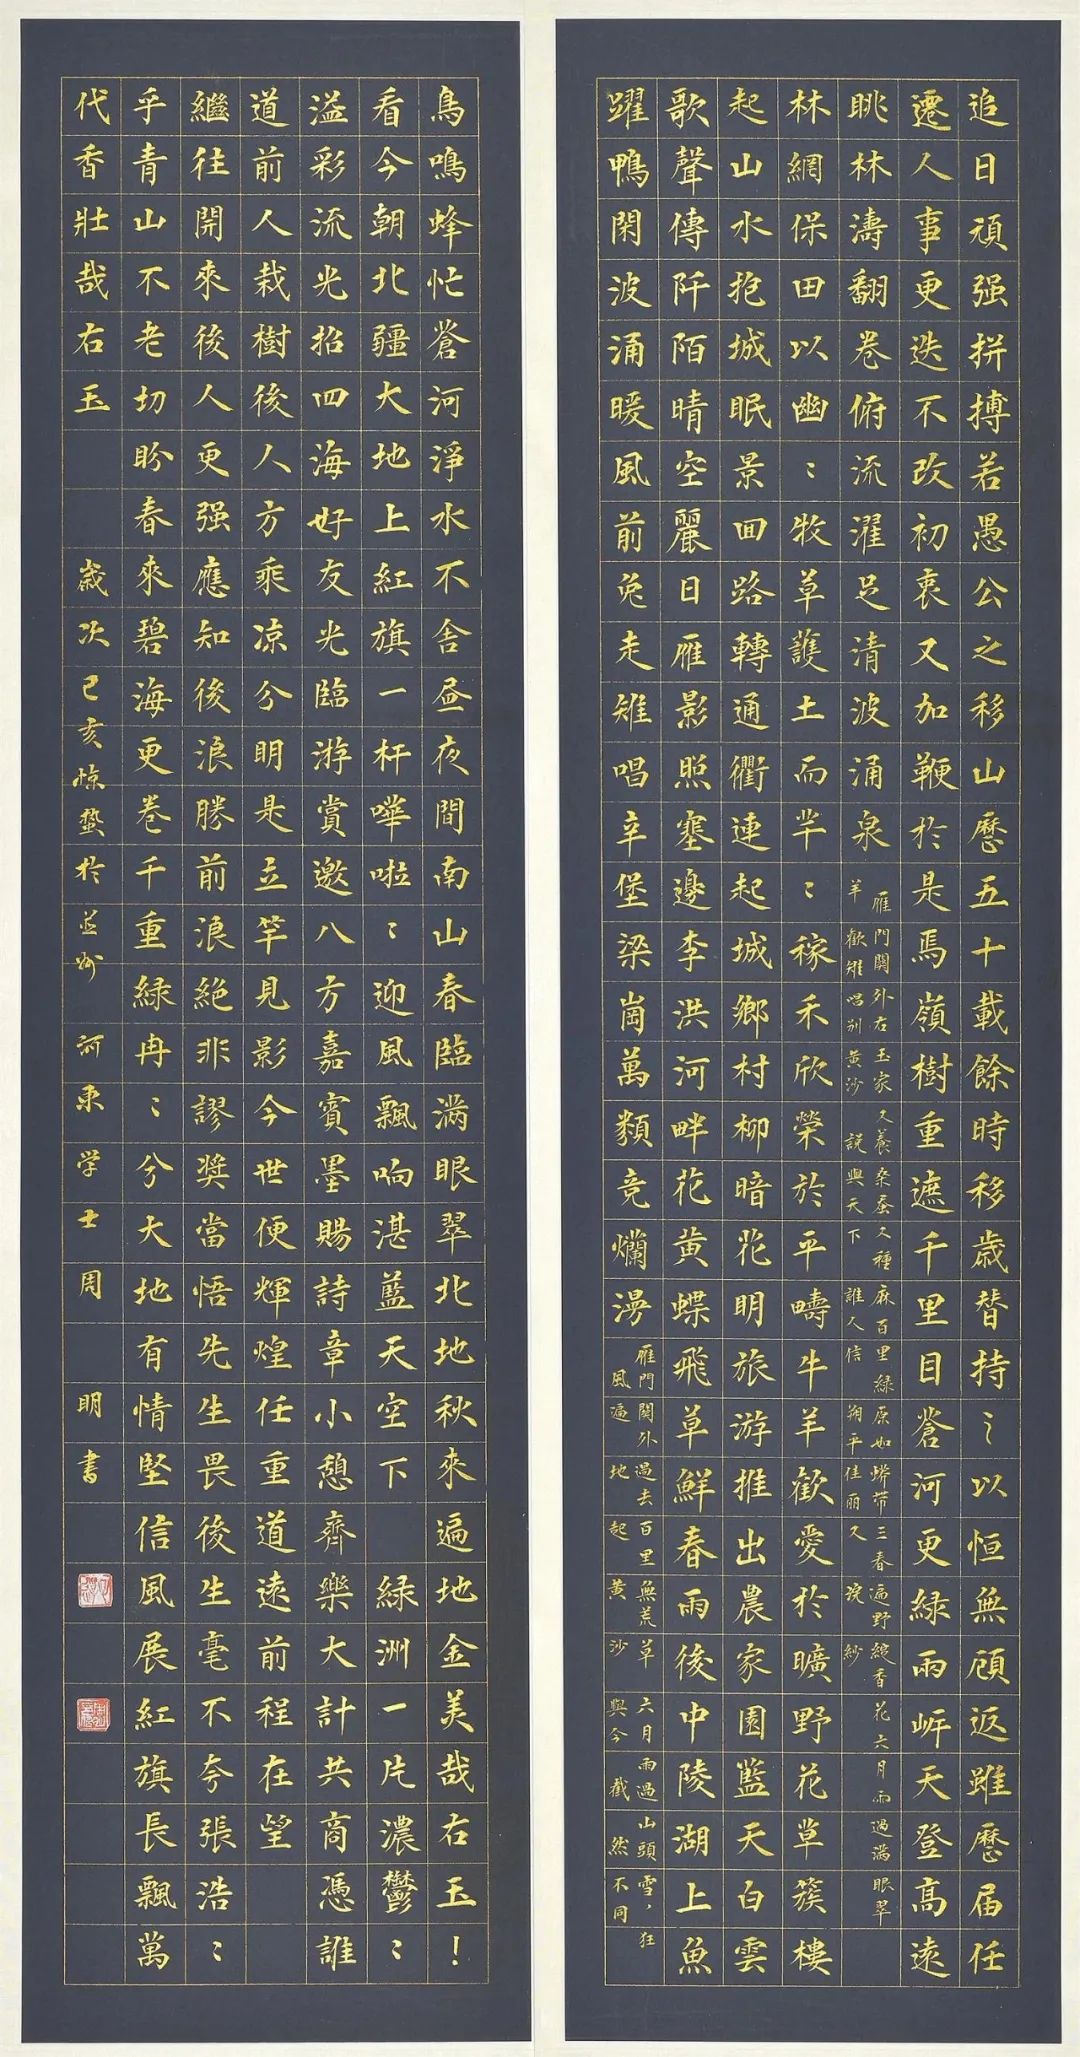 追日頑强拼搏若愚公之移山歷五十載餘時移歲替持之以恒無顧返雖歷届任
遷人事更迭不改初衷又加鞭於是馬嶺樹重遮千里目蒼河更緑兩岍天登高遠
眺林濤翻卷俯流濯足清波涌泉
雁門關外右玉家又養桑蚕又種麻百里緑原如綉带三春遍野綻香花六月雨過滿眼翠
羊歡雉唱别黄沙說與天下誰人信朔平佳丽又浣紗
林網保田以幽〻牧草護土而芊〻稼禾欣榮於平疇牛羊歡愛於曠野花草簇樓
起山水抱城眠景回路轉通衢連起城鄉村柳暗花明旅游推出農家園藍天白雲
歌聲傳阡陌晴空麗日雁影照塞邊李洪河畔花黄蝶飛草鮮春雨後中陵湖上魚
躍鴨閑波涌暖風前兔走雉唱辛堡梁崗萬類竞爛漫
雁門關外過去百里無荒草六月雨過山頭雪，狂
風遍地起黄沙與今截然不同
鳥鳴蜂忙蒼河淨水不舍昼夜間南山春臨滿眼翠北地秋來遍地金美哉右玉！
看今朝北疆大地上紅旗一杆嘩啦〻迎風飄响湛藍天空下 緑洲一片濃鬱〻
溢彩流光招四海好友光臨游賞邀八方嘉賓墨賜詩章小憩齊樂大計共商憑誰
道前人栽樹後人方乘凉分明是立竿見影今世便輝煌任重道遠前程在望
繼往開來後人更强應知後浪勝前浪絶非謬奬當悟先生畏後生毫不夸張浩〻
乎青山不老切盼春來碧海更卷千重緑冉〻兮大地有情堅信風展紅旗長飄萬
代香壯哉右玉 歲次己亥惊蟄於並州 河東学士周明書